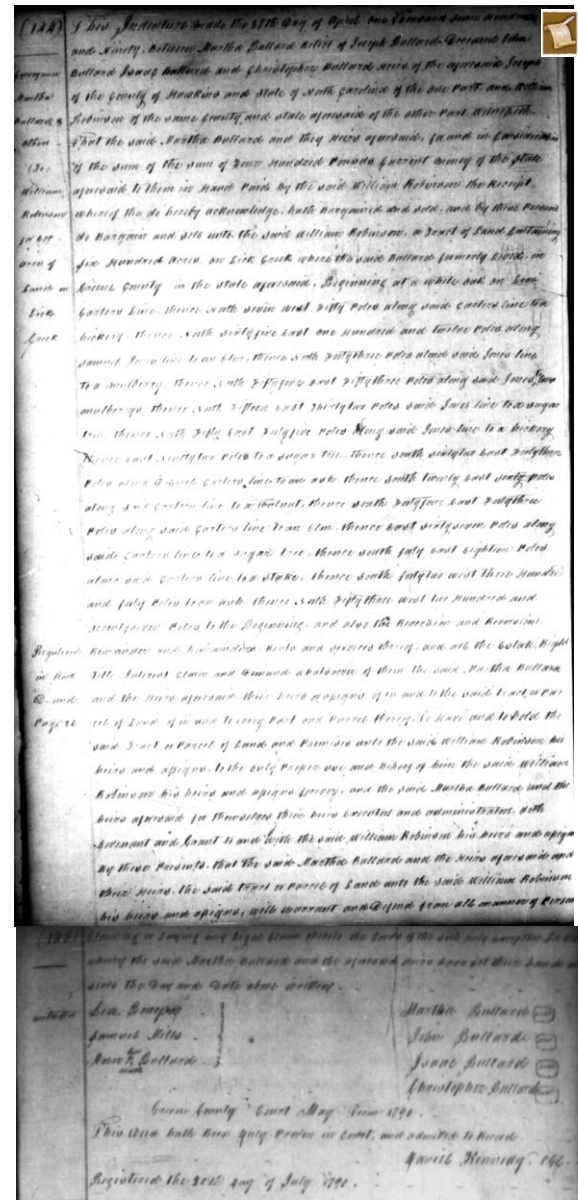 (144)
This Indenture made the 27th Day of April one Thousand seven Hundred
and Ninety, between Martha Bullard relict of Joseph Bullard Deceased John
Bullard Isaac Bullard and Christopher Bullard Heirs of the aforesaid Joseph
of the County of Hawkins and State of North Carolina of the one Part, and William
Robinson of the same County and state aforesaid of the other Part, Witnesseth
That the said Martha Bullard and they Heirs aforesaid, for and in Consideration
of the sum of the sum of Four Hundred Pounds Current money of the State
aforesaid to them in Hand Paid by the said William Robinson the Receipt
whereof tha do hereby acknowledge, hath Bargained and sold, and by these Presents
do Bargain and sell unto the said William Robinson, a Tract of Land Containing
six Hundred Acres on Lick Creek where the said Bullard formerly Lived, in
Greene County in the state aforesaid. Beginning at a white oak on
Carters Line, thence North seven west Fifty Poles along said Carters line to a
hickory, thence North Sixtyfive East one Hundred and twelve Poles along
Samuel Jones line to an Elm, thence North Fortythree Poles along said Jones line
to a mulberry thence North Fiftyfour East Fiftythree Poles along said Jones two
mulberrys thence North Fifteen East Thirtytwo Poles said Jones line to a sugar
tree, thence North Fifty East Fortyfive Poles along said Jones line to a hickory
thence East Poles to a sugar tree, thence south sixtytwo East Fortythree
Poles along Carters line to an ash, thence south Twenty East sixty Poles
along said Carters line to a Walnut, thence south Fortyfour East Fortythree
Poles along said Carters line to an Elm, thence East sixtyseven Poles along
said Carters line to a sugar tree, thence south forty East Eighteen Poles
along said Carters line to a Stake, thence south fortytwo west Three Hundred
and forty Poles to an ash, thence North Fiftythree west two Hundred and
seventyseven Poles to the Beginning, and also the Reversion and Reversions
Remainder and Remainders Rents and services thereof, and all the Estate, Right
Title Interest Claim and Demand whatsoever of them the said Martha Bullard
and the Heirs aforesaid their heirs & assigns, of in and to the said tract, or Par
cel of Land of in and to every Part and Parcel thereof, To Have and to Hold the
said Tract or Parcel of Land and Premises unto the said William Robinson his
heirs and assigns, to the only Proper use and Behoof of him the said William
Robinson his heirs and assigns forever, and the said Martha Bullard and the
heirs aforesaid for themselves their heirs Executors and administrators, doth
Covenant and Grant to and with the said William Robinson his heirs and assigns
by these Presents, that the said Martha Bullard and the Heirs aforesaid and
their Heirs, the said Tract or Parcel of Land unto the said William Robinson
his heirs and assigns, will warrant and Defend from all manner of Persons
Martha
Bullard &
others
To
William
Robinson
for 600
Acres of
Land on
Lick
Creek
Registered
in Book
D and
Page 26
(145) Claiming or Laying any Legal Claim
whereof the said Martha Bullard and the aforesaid heirs have set their hands and
seals the Day and Date above written
Martha Bullard
Samuel Mills
John Bullard
Ann Bullard
Isaac Bullard
Christopher Bullard
Greene County Court May Term 1790.
This Deed hath been duly Proven in Court, and admitted to Record
Daniel Kennedy Clk
Registered the 20th day of July 1790.